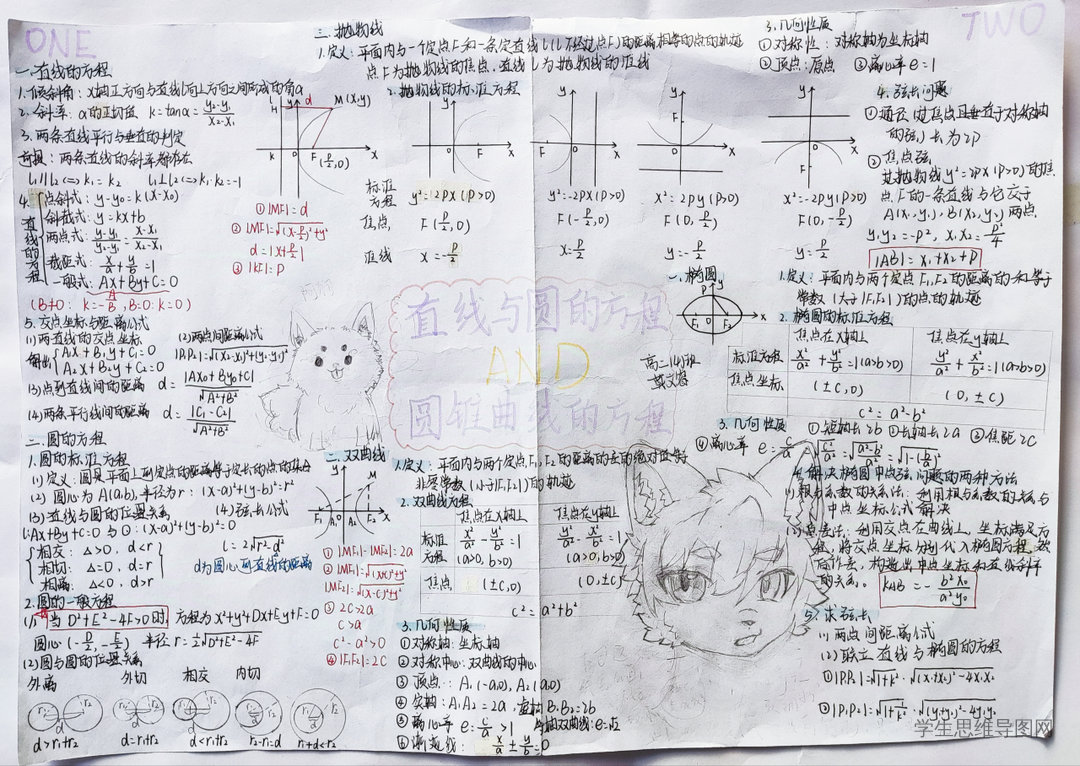 ONE
一.直线的方程
1.倾斜角：x轴正方向与直线向上方向之间所成的角α
2.斜率：α的正切值 k=tanα=\frac{y₂-y₁}{x₂-x₁}
3.两条直线平行与垂直的判定
前提：两条直线的斜率都存在
l₁∥l₂⇔k₁=k₂ l₁⊥l₂⇔k₁·k₂=-1
4.
直线的方程
点斜式：y-y₀=k(x-x₀)
斜截式：y=kx+b
两点式：\frac{y-y₁}{y₂-y₁}=\frac{x-x₁}{x₂-x₁}
截距式：\frac{x}{a}+\frac{y}{b}=1
一般式：Ax+By+C=0
(B≠0：k=-\frac{A}{B}，B=0：k=0)
5.交点坐标与距离公式
(1)两直线的交点坐标
解出{A₁x+B₁y+C₁=0
A₂x+B₂y+C₂=0
(2)两点间距离公式
|P₁P₂|=√(x₂-x₁)²+(y₂-y₁)²
(3)点到直线间的距离 d=\frac{|Ax₀+By₀+C|}{√A²+B²}
(4)两条平行线间的距离 d=\frac{|C₁-C₂|}{√A²+B²}
二.圆的方程
1.圆的标准方程
(1)定义：圆是平面上到定点的距离等于定长的点的集合
(2)圆心为A(a,b)，半径为r：(x-a)²+(y-b)²=r²
(3)直线与圆的位置关系
l:Ax+By+C=0与O：(x-a)²+(y-b)²=0
相交：△>0，d<r
相切：△=0，d=r
相离：△<0，d>r
(4)弦长公式
l=2√r²-d²
d为圆心到直线的距离
2.圆的一般方程
(1)当D²+E²-4F>0时，方程为x²+y²+Dx+Ey+F=0
圆心(-\frac{D}{2},-\frac{E}{2}) 半径r=\frac{1}{2}√D²+E²-4F
(2)圆与圆的位置关系
外离 外切 相交 内切
r₁ r₂ d
d>r₁+r₂ d=r₁+r₂ d<r₁+r₂ r₂-r₁=d r₁+d<r₂
三.抛物线
1.定义：平面内与一个定点F和一条定直线l(l不经过点F)的距离相等的点的轨迹
点F为抛物线的焦点，直线l为抛物线的准线
H l y d M(x,y)
K O F(\frac{p}{2},0) x
①|MF|=d
②|MF|=√(x-\frac{p}{2})²+y²
d=|x+\frac{p}{2}|
③|KF|=p
2.抛物线的标准方程
标准方程 y²=2px(p>0) y²=-2px(p>0) x²=2py(p>0) x²=-2py(p>0)
焦点 F(\frac{p}{2},0) F(-\frac{p}{2},0) F(0,\frac{p}{2}) F(0,-\frac{p}{2})
准线 x=-\frac{p}{2} x=\frac{p}{2} y=-\frac{p}{2} y=\frac{p}{2}
直线与圆的方程
AND
圆锥曲线的方程
二.双曲线
y M
F₁ A₁ O A₂ F₂ x
①|MF₁|-|MF₂|=2a
②|MF₁|=√(x+c)²+y²
|MF₂|=√(x-c)²+y²
③2c>2a
c>a
c²-a²>0
④|F₁F₂|=2c
1.定义：平面内与两个定点F₁,F₂的距离的差的绝对值等于
非零常数(小于|F₁F₂|)的轨迹
2.双曲线方程
焦点在x轴上 焦点在y轴上
标准方程 \frac{x²}{a²}-\frac{y²}{b²}=1 (a>0,b>0) \frac{y²}{a²}-\frac{x²}{b²}=1 (a>0,b>0)
焦点 (±c,0) (0,±c)
c²=a²+b²
3.几何性质
①对称轴：坐标轴
②对称中心：双曲线的中心
③顶点：A₁(-a,0)，A₂(a,0)
④实轴：A₁A₂=2a，虚轴B₁B₂=2b
⑤离心率 e=\frac{c}{a}>1 等轴双曲线：e=√2
⑥渐近线：\frac{x}{a}±\frac{y}{b}=0
TWO
3.几何性质
①对称性：对称轴为坐标轴
②顶点：原点 ③离心率e=1
4.弦长问题
①通径(过焦点且垂直于对称轴
的弦)长为2p
②焦点弦
过抛物线y²=2px(p>0)的焦
点F的一条直线与它交于
A(x₁,y₁)，B(x₂,y₂)两点
y₁y₂=-p²，x₁x₂=\frac{p²}{4}
|AB|=x₁+x₂+p
一.椭圆
P y
F₁ O F₂ x
高二(4)班
1.定义：平面内与两个定点F₁,F₂的距离的和等于
常数(大于|F₁F₂|)的点的轨迹
2.椭圆的标准方程
焦点在x轴上 焦点在y轴上
标准方程 \frac{x²}{a²}+\frac{y²}{b²}=1(a>b>0) \frac{y²}{a²}+\frac{x²}{b²}=1(a>b>0)
焦点坐标 (±c,0) (0,±c)
c²=a²-b²
3.几何性质 ①短轴长2b ②长轴长2a ③焦距2c
④离心率 e=\frac{c}{a}=√\frac{c²}{a²}=√\frac{a²-b²}{a²}=√1-(\frac{b}{a})²
4.解决椭圆中点弦问题的两种方法
(1)根与系数的关系法：利用根与系数的关系与
中点坐标公式解决
(2)点差法：利用交点在曲线上，坐标满足方
程，将交点坐标分别代入椭圆方程，然
后作差，构造出中点坐标和直线斜率
的关系。 kAB=-\frac{b²x₀}{a²y₀}
5.求弦长
(1)两点间距离公式
(2)联立直线与椭圆的方程
①|P₁P₂|=√1+k²·√(x₁+x₂)²-4x₁x₂
②|P₁P₂|=√1+\frac{1}{k²}·√(y₁+y₂)²-4y₁y₂
学生思维导图网